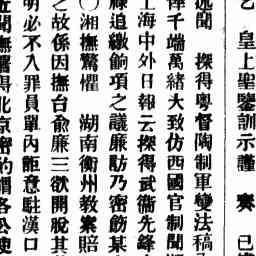 乞 皇上聖鑒訓示謹 奏 已
述聞 探得粵督陶制軍變法稿
律千端萬緒大致仿西國官制
上海中外日報云探得武衞先鋒
糜追繳餉項之議廉訪乃密飭某
〇湘撫驚懼 湖南衡州教案賠
之故係因撫台俞廉三欲開脫其
明必不入罪員單內詎意駐漢口
近聞撫署得北京密約謂各公使